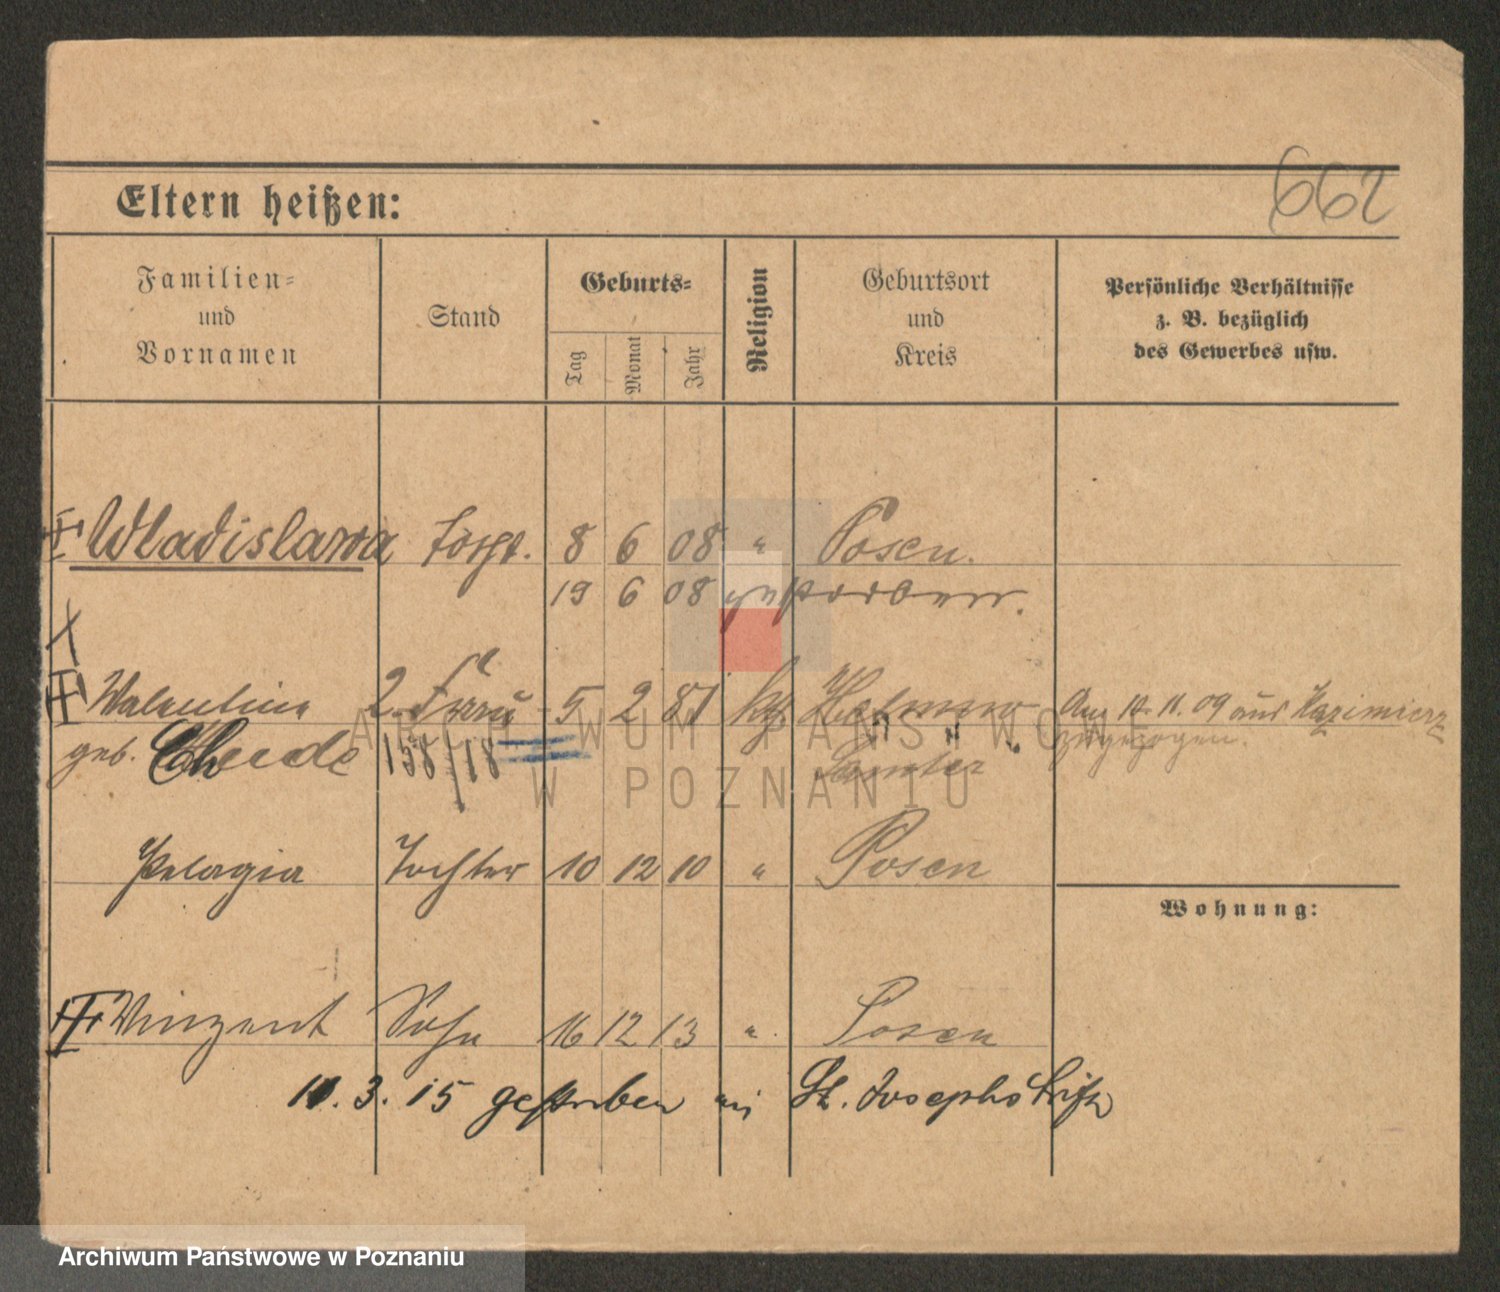 662
Eltern heißen:
Familien=
und
Vornamen
Stand
Geburts=
Tag
Monat
Jahr
Religion
Geburtsort
und
Kreis
Persönliche Verhältnisse
z. B. bezüglich
des Gewerbes usw.
Wladislawa 8 6 08 " Posen.
19 6 08 gestorben.
Valentine 2. Frau 5 2 81 kth
Am 10.11.09 aus Kazimierz
zugezogen.
geb. 158/18 Samter
Pelagia Tochter 10 12 10 " Posen
Wohnung:
Vinzent Sohn 16 12 13 " Posen
11.3.15 gestorben im St. Josephstift
ARCHIWUM PAŃSTWOWE
W POZNANIU
Archiwum Państwowe w Poznaniu